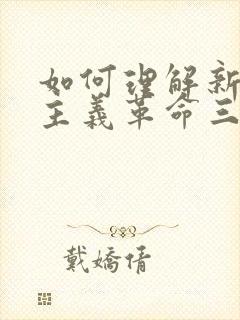 如何理解新
主義革命三
戴嬌倩